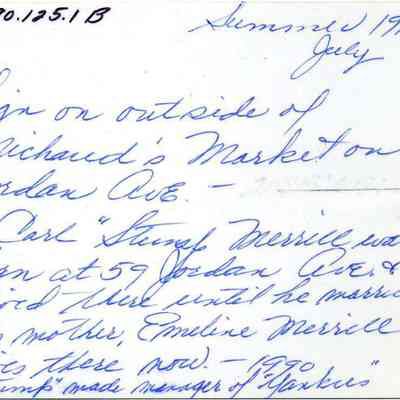 90.125.1 B
Summer 19
July
ign on outside of
ichaud's Market on
ordan Ave. -
Carl "Stump" Merrill wa
rn at 59 Jordan Ave. &
ived there until he marrie
mother, Emeline Merrill
ves there now. - 1990
tump" made manager of "Yankees"